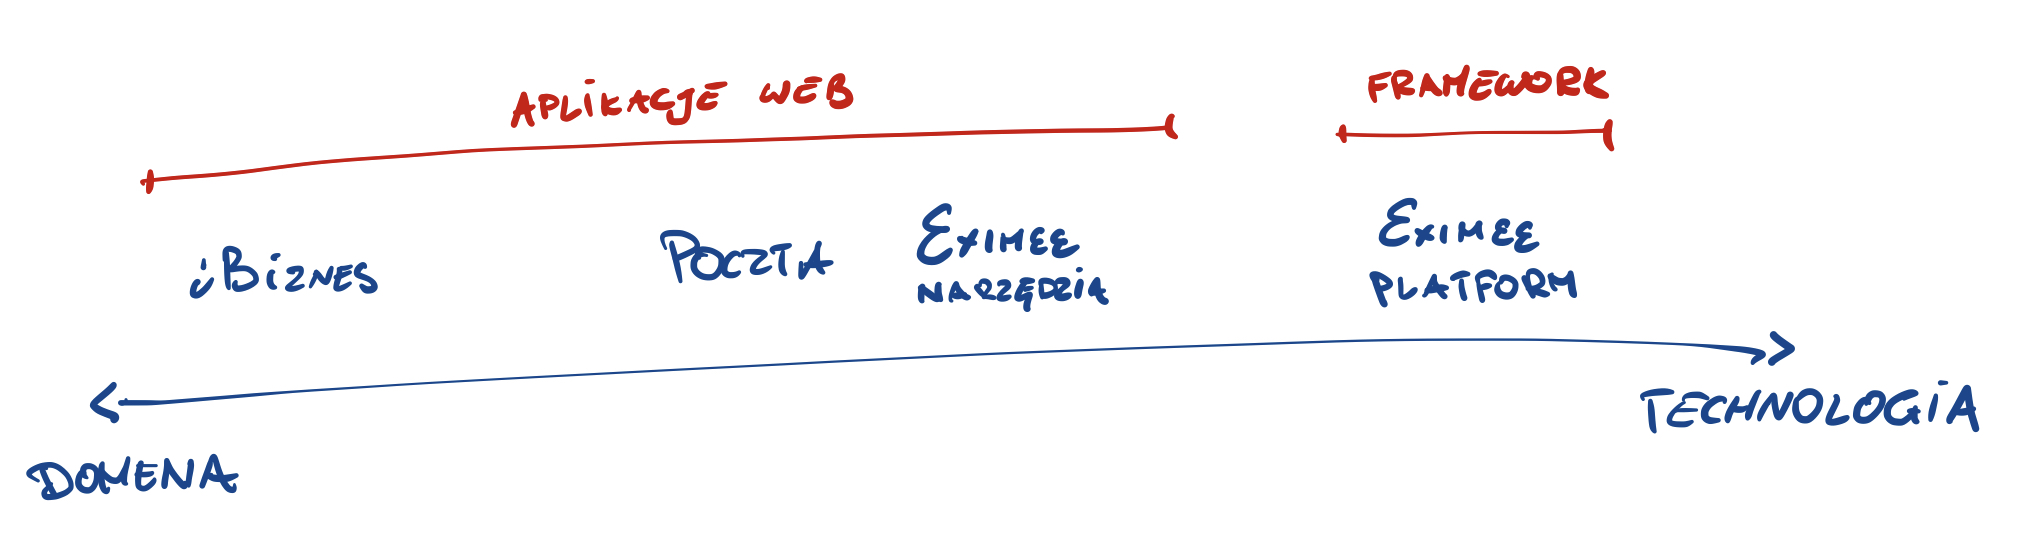 APLIKACJE WEB
FRAMEWORK
iBiZNES
POCZTA
EXIMEE
NARZĘDZIA
EXIMEE
PLATFORM
TECHNOLOGiA
DOMENA